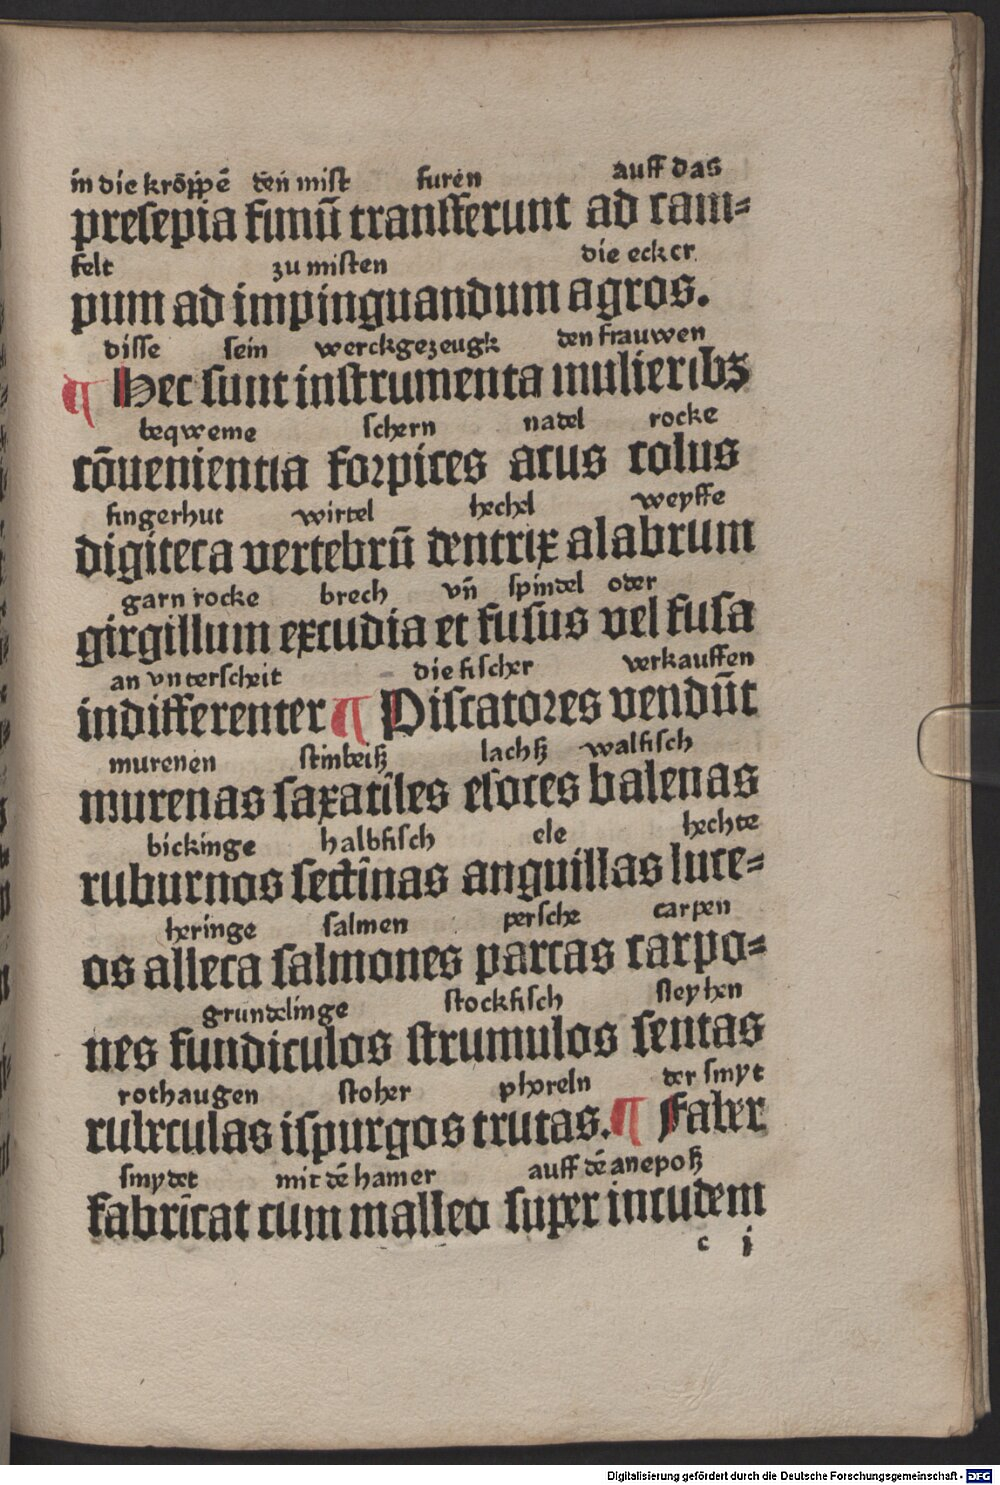 in die krōppē den mist furen auff das
presepia fimū transferunt ad cam⸗
felt zu misten die ecker
pum ad impinguandum agros.
disse sein werckgezeugk den frauwen
¶ Hec sunt instrumenta mulieribꝫ
beqweme schern nadel rocke
cōuenientia forpices acus colus
fingerhut wirtel hechel weyffe
digiteca vertebrū dentrix alabrum
garn rocke brech vn̄ spindel oder
girgillum excudia et fusus vel fusa
an vnterscheit die fischer verkauffen
indifferenter ¶ Piscatores vendūt
murenen stinbeiß lachß walfisch
murenas saxatiles esoces balenas
bickinge halbfisch ele hechte
ruburnos sectinas anguillas luce⸗
heringe salmen persche carpen
os alleca salmones parcas carpo⸗
grundelinge stockfisch sleyhen
nes fundiculos strumulos sentas
rothaugen stoher phoreln der smyt
rubeculas ispurgos trutas. ¶ Faber
smydet mit dē hamer auff dē anepoß
fabricat cum malleo super incudem
c j
Digitalisierung gefördert durch die Deutsche Forschungsgemeinschaft - DFG